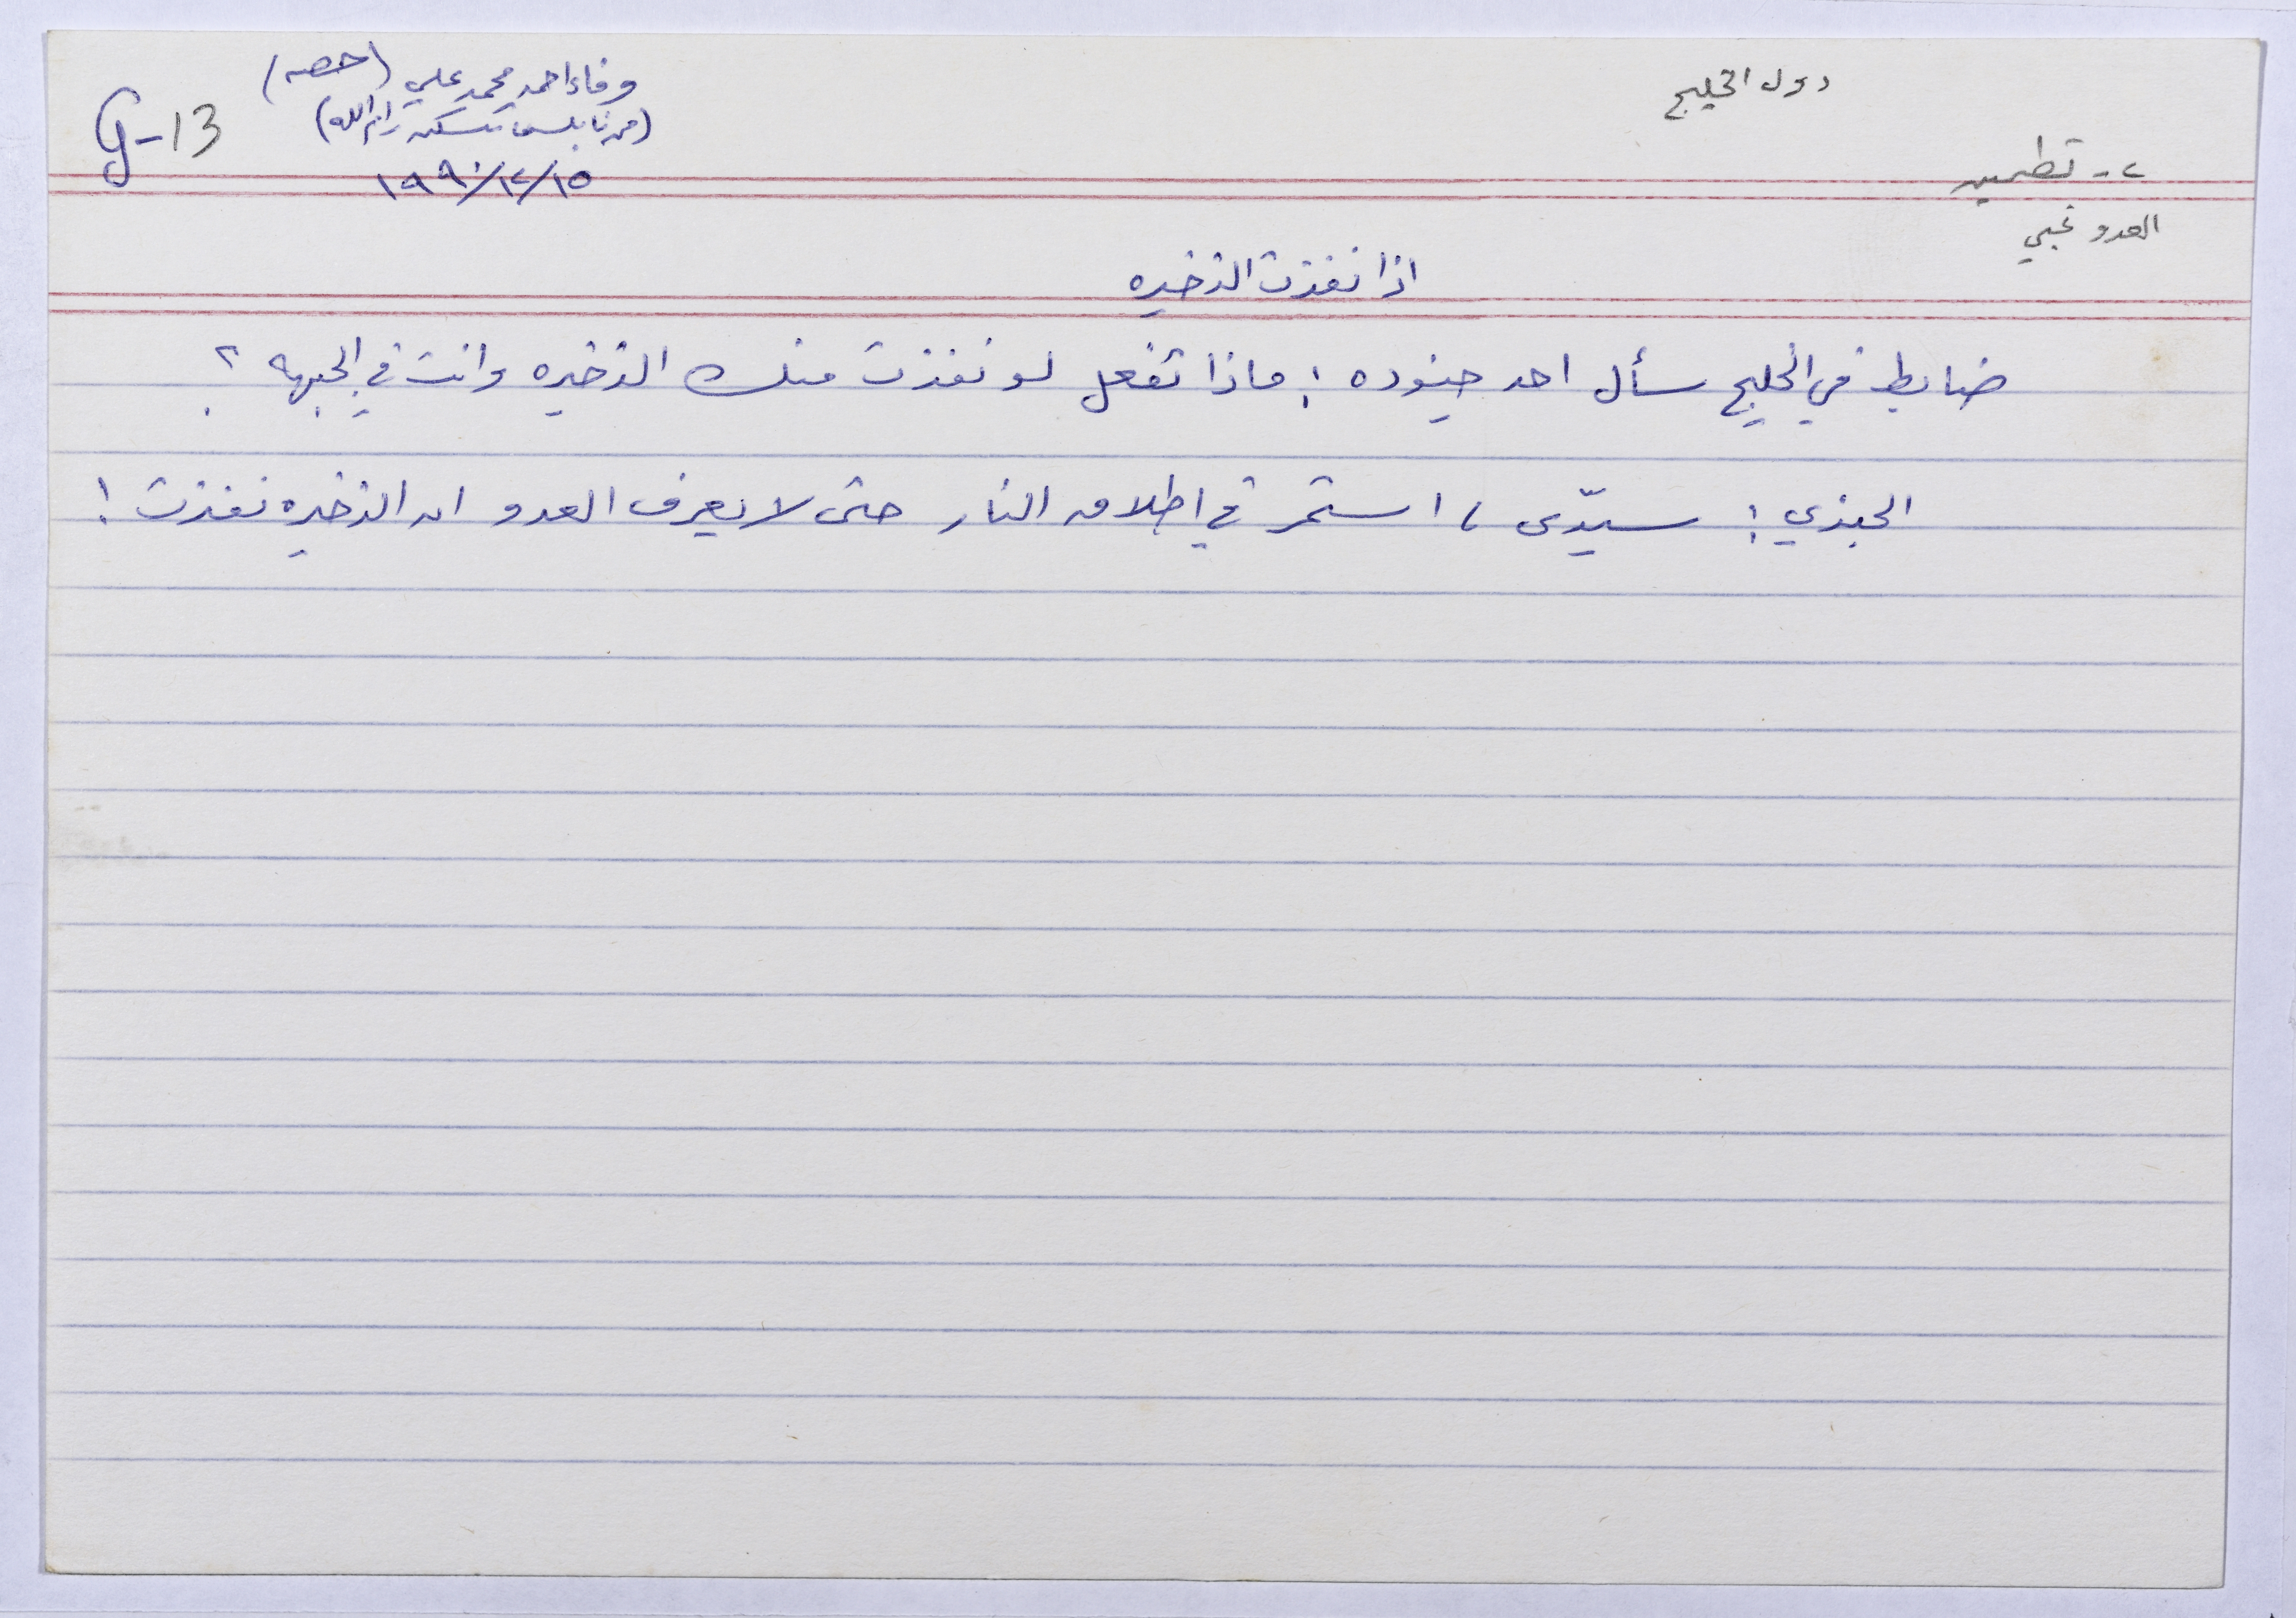 دول الخليج
٢- تطمين
العدو غبي
وفاء احمد محمد علي (حصه)
(من نابلس تسكن رام الله)
١٩٩٠/١٢/١٥
G-13
اذا نفذت الذخيره
ضابط في الخليج سأل احد جنوده : ماذا تفعل لو نفذت منك الذخيره وانت في الجبهه ؟
الجندي : سيّدي ، استمر في اطلاق النار حتى لا يعرف العدو ان الذخيره نفذت !